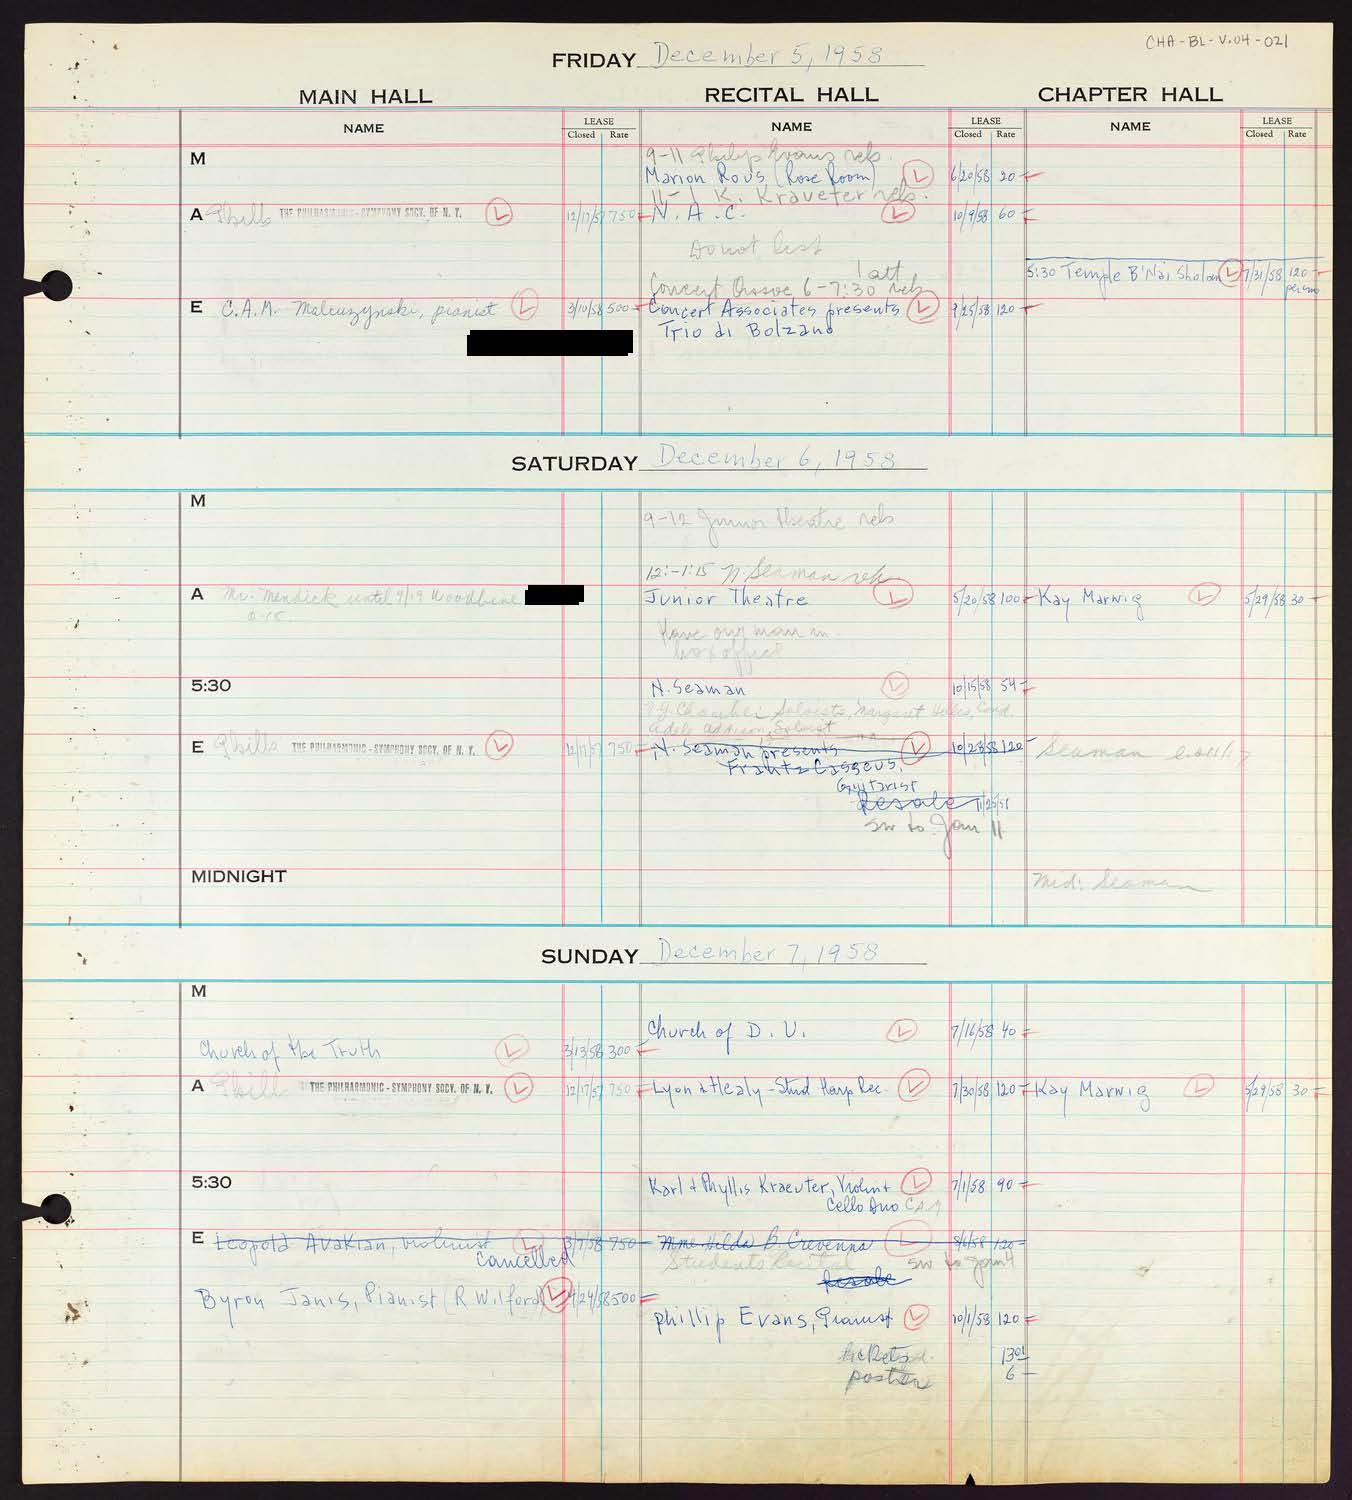 CHA-BL-V.04-021
FRIDAY December 5, 1958
MAIN HALL RECITAL HALL CHAPTER HALL
NAME LEASE Closed Rate NAME LEASE Closed Rate NAME LEASE Closed Rate
M
9-11 Philip Evans reh.
Marion Rous (Rose Room) L 6/20/58 20-
11-1 K. Kraueter reh.
A Phills THE PHILHARMONIC-SYMPHONY SOCY. OF N. Y. L 12/17/57 750- N.A.C. L 10/9/58 60-
Do not list
5:30 Temple B'Nai Sholom L 7/31/58 120-
per mo
1 att
Concert Assoc 6-7:30 reh
E C.A.M. Malcuzynski, pianist L 3/10/58 500- Concert Associates presents L 9/25/58 120-
Trio di Bolzano
SATURDAY December 6, 1958
M
9-12 Junior Theatre reh
12:-1:15 N. Seaman reh
A Mr. Mendick until 9/19 Woodbine Junior Theatre L 5/20/58 100- Kay Marwig L 5/29/58 30-
Have our man in
box office
5:30 N. Seaman L 10/15/58 54-
N.Y. Chamber Soloists, Margaret Hillis, Cond.
Adele Addison, Soloist
E Phills THE PHILHARMONIC-SYMPHONY SOCY. OF N. Y. L 12/17/57 750- N. Seaman presents L 10/28/58 120- Seaman
Frantz Casseus,
Guitarist
Resale 11/25/58
sw to Jan 11
MIDNIGHT Mid: Seaman
SUNDAY December 7, 1958
M
Church of D. U. L 7/16/58 40-
Church of the Truth L 3/13/58 300-
A Phills THE PHILHARMONIC-SYMPHONY SOCY. OF N. Y. L 12/17/57 750- Lyon & Healy-Stud Harp Rec. L 7/30/58 120- Kay Marwig L 5/29/58 30-
5:30 Karl & Phyllis Kraeuter, Violin & L 7/1/58 90-
Cello Duo C.A.M
E Leopold Avakian, violinist L 3/7/58 750- Mme Hilda B. Crevenna L 8/6/58 120-
Cancelled Students Recital sw to Jan 4
Resale
Byron Janis, Pianist (R Wilford) L 4/24/58 500-
Phillip Evans, Pianist L 10/1/58 120-
tickets 1301
poster 6-